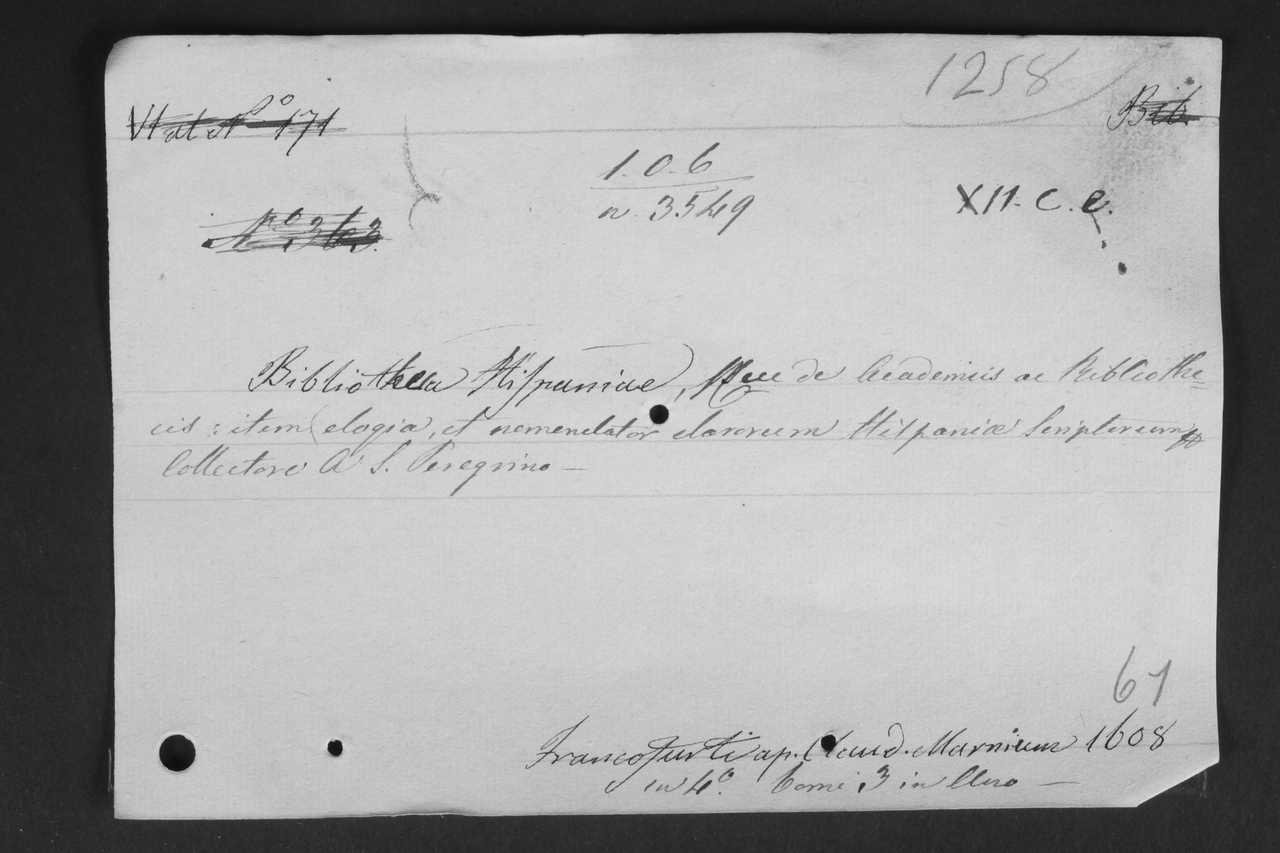 1258
Nº 171
Bib.
1. 0. 6
n. 3549
XII. C. e.
Nº 363.
Bibliotheca Hispaniae, seu de Academiis ac Bibliothe=
cis: item elogia, et nomenclator clarorum Hispaniæ Scriptorum
Collectore A. S. Peregrino —
61
Francofurti ap. Claud. Marnium 1608
in 4º. Tomi 3 in Uno —